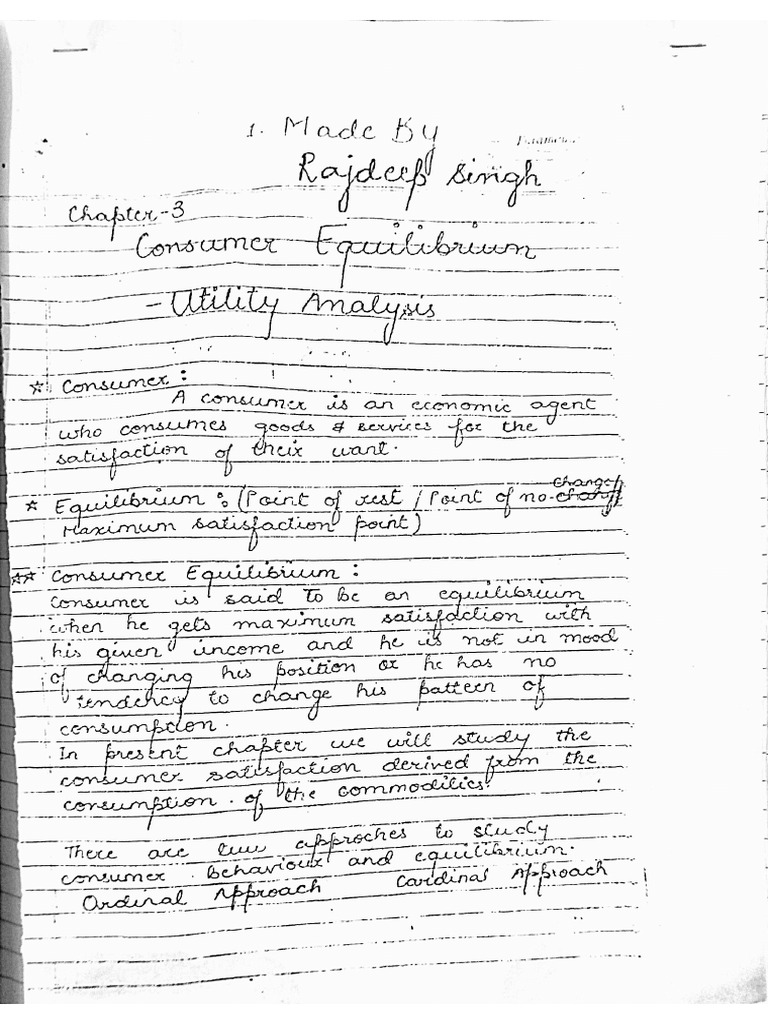 1. Made By
Rajdeep Singh
Chapter-3
Consumer Equilibrium
- Utility Analysis
☆ Consumer :
A consumer is an economic agent
who consumes goods & services for the
satisfaction of their want.
☆ Equilibrium : (Point of rest / Point of no change
Maximum satisfaction point)
☆☆ Consumer Equilibrium :
Consumer is said to be an equilibrium
when he gets maximum satisfaction with
his given income and he is not in mood
of changing his position or he has no
tendency to change his pattern of
consumption.
In present chapter we will study the
consumer satisfaction derived from the
consumption of the commodities.
There are two approches to study
consumer behaviour and equilibrium.
Ordinal Approach Cardinal Approach